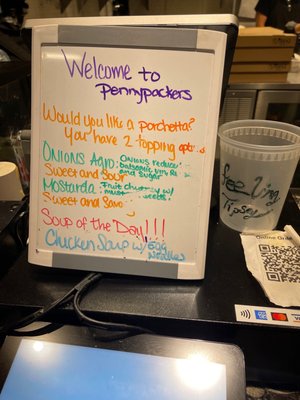 Welcome to
Pennypackers
Would you like a porchetta?
You have 2 topping opt
ONIONS Agro: Onions reduc
balsamic vin Re
and sugar
Sweet and Sour
Mostarda: Fruit chut y w/
must seeds
Sweet and Savo
Soup of the Day!!!
Chicken Soup w/ Egg
Noodles
feeling
Tipsy
Online Ord